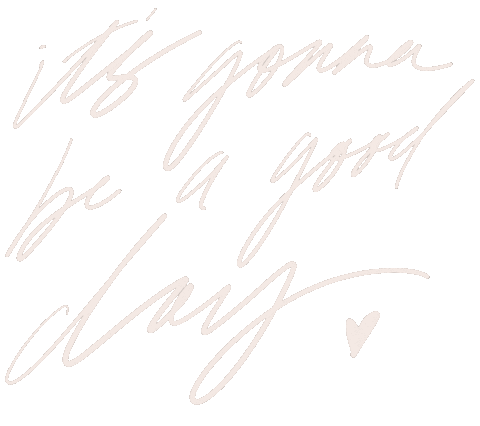 it's gonna
be a good
day